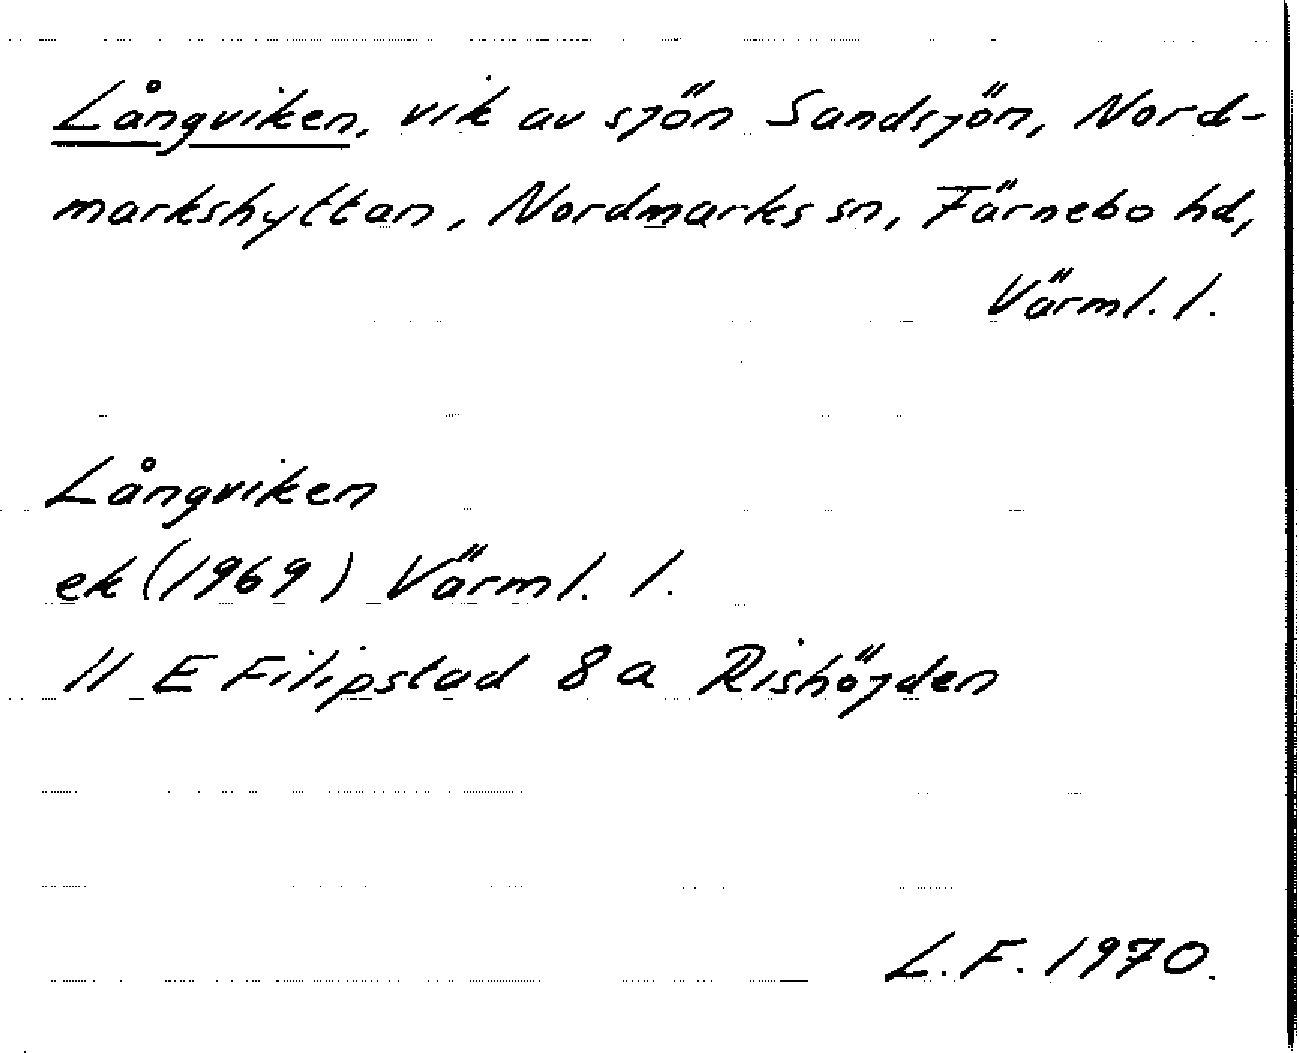 Långviken, vik av sjön Sandsjön, Nord-
markshyttan, Nordmarks sn, Färnebo hd,
Värml. l.
Långviken
ek (1969) Värml. l.
11 E Filipstad 8 a Rishöjden
L.F. 1970.